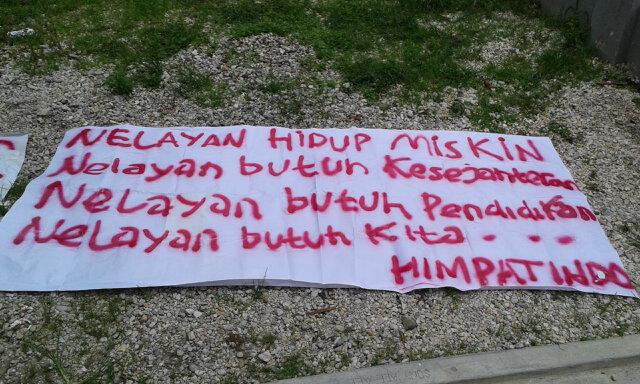 NELAYAN HIDUP MISKIN
Nelayan butuh Kesejahteraan
Nelayan butuh Pendidikan
Nelayan butuh Kita - - -
HIMPATINDO